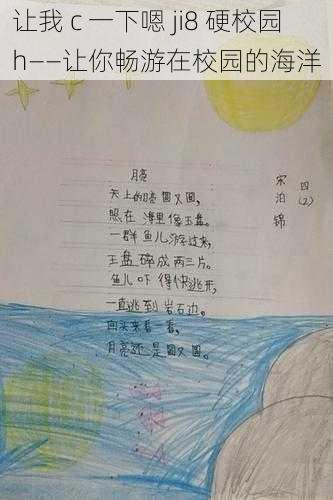 让我 c 一下嗯 ji8 硬校园
h——让你畅游在校园的海洋
月亮
四(2)
宋泊锦
天上的月亮圆又圆,
照在海里像玉盘。
一群鱼儿游过来,
玉盘碎成两三片。
鱼儿吓得快逃开,
一直逃到岩石边。
回头来看一看,
月亮还是圆又圆。